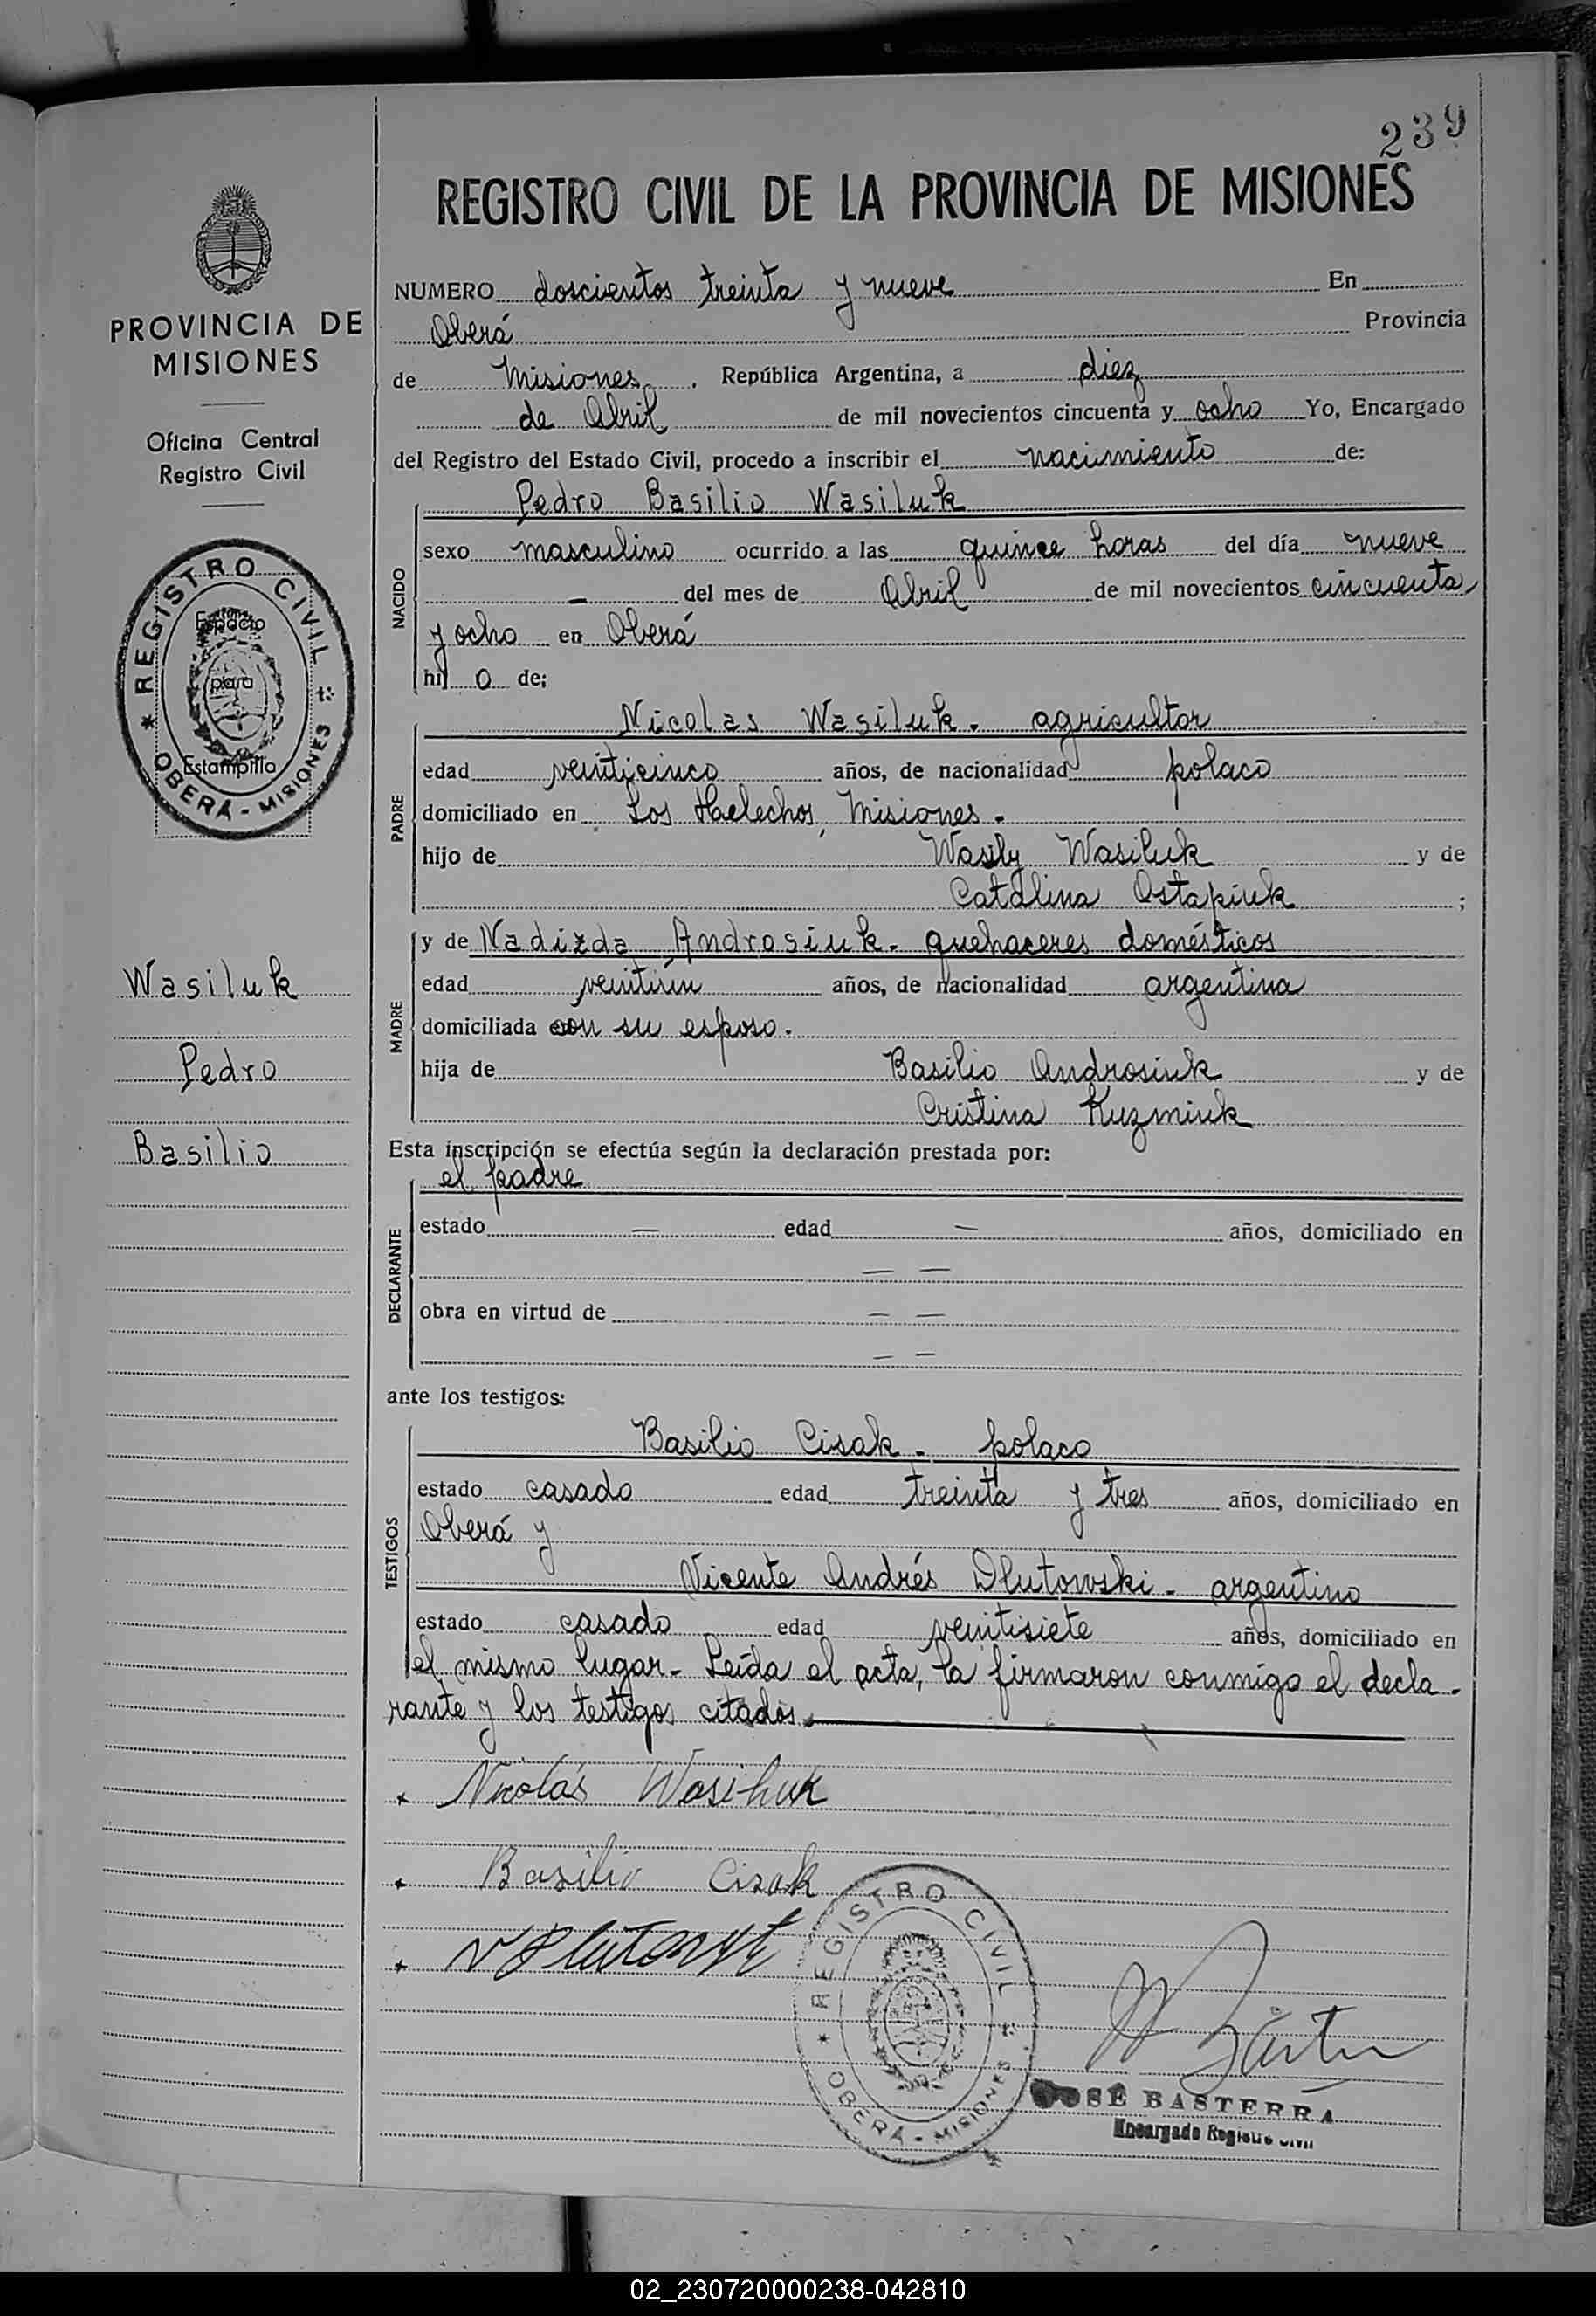 239
REGISTRO CIVIL DE LA PROVINCIA DE MISIONES
PROVINCIA DE
MISIONES
Oficina Central
Registro Civil
REGISTRO CIVIL
Espacio
para
Estampilla
OBERÁ - MISIONES
Wasiluk
Pedro
Basilio
NUMERO doscientos treinta y nueve En
Oberá Provincia
de Misiones . República Argentina, a diez
de Abril de mil novecientos cincuenta y ocho Yo, Encargado
del Registro del Estado Civil, procedo a inscribir el nacimiento de:
NACIDO
Pedro Basilio Wasiluk
sexo masculino ocurrido a las quince horas del día nueve
— del mes de Abril de mil novecientos cincuenta
y ocho en Oberá
hij o de;
PADRE
Nicolas Wasiluk - agricultor
edad veinticinco años, de nacionalidad polaco
domiciliado en Los Helechos, Misiones -
hijo de Wasily Wasiluk y de
Catalina Ostapiuk ;
MADRE
y de Nadizda Androsiuk - quehaceres domésticos
edad veintiún años, de nacionalidad argentina
domiciliada con su esposo.
hija de Basilio Androsiuk y de
Cristina Kuzmiuk
Esta inscripción se efectúa según la declaración prestada por:
DECLARANTE
el padre
estado — edad — años, domiciliado en
— —
obra en virtud de — —
— —
ante los testigos:
TESTIGOS
Basilio Cisak - polaco
estado casado edad treinta y tres años, domiciliado en
Oberá y
Vicente Andrés Dlutowski - argentino
estado casado edad veintisiete años, domiciliado en
el mismo lugar - Leída el acta, la firmaron conmigo el decla-
rante y los testigos citados.
Nicolás Wasiluk
Basilio Cisak
V Dlutowski
REGISTRO CIVIL
OBERÁ - MISIONES
JOSÉ BASTERRA
Encargado Registro Civil
02_230720000238-042810